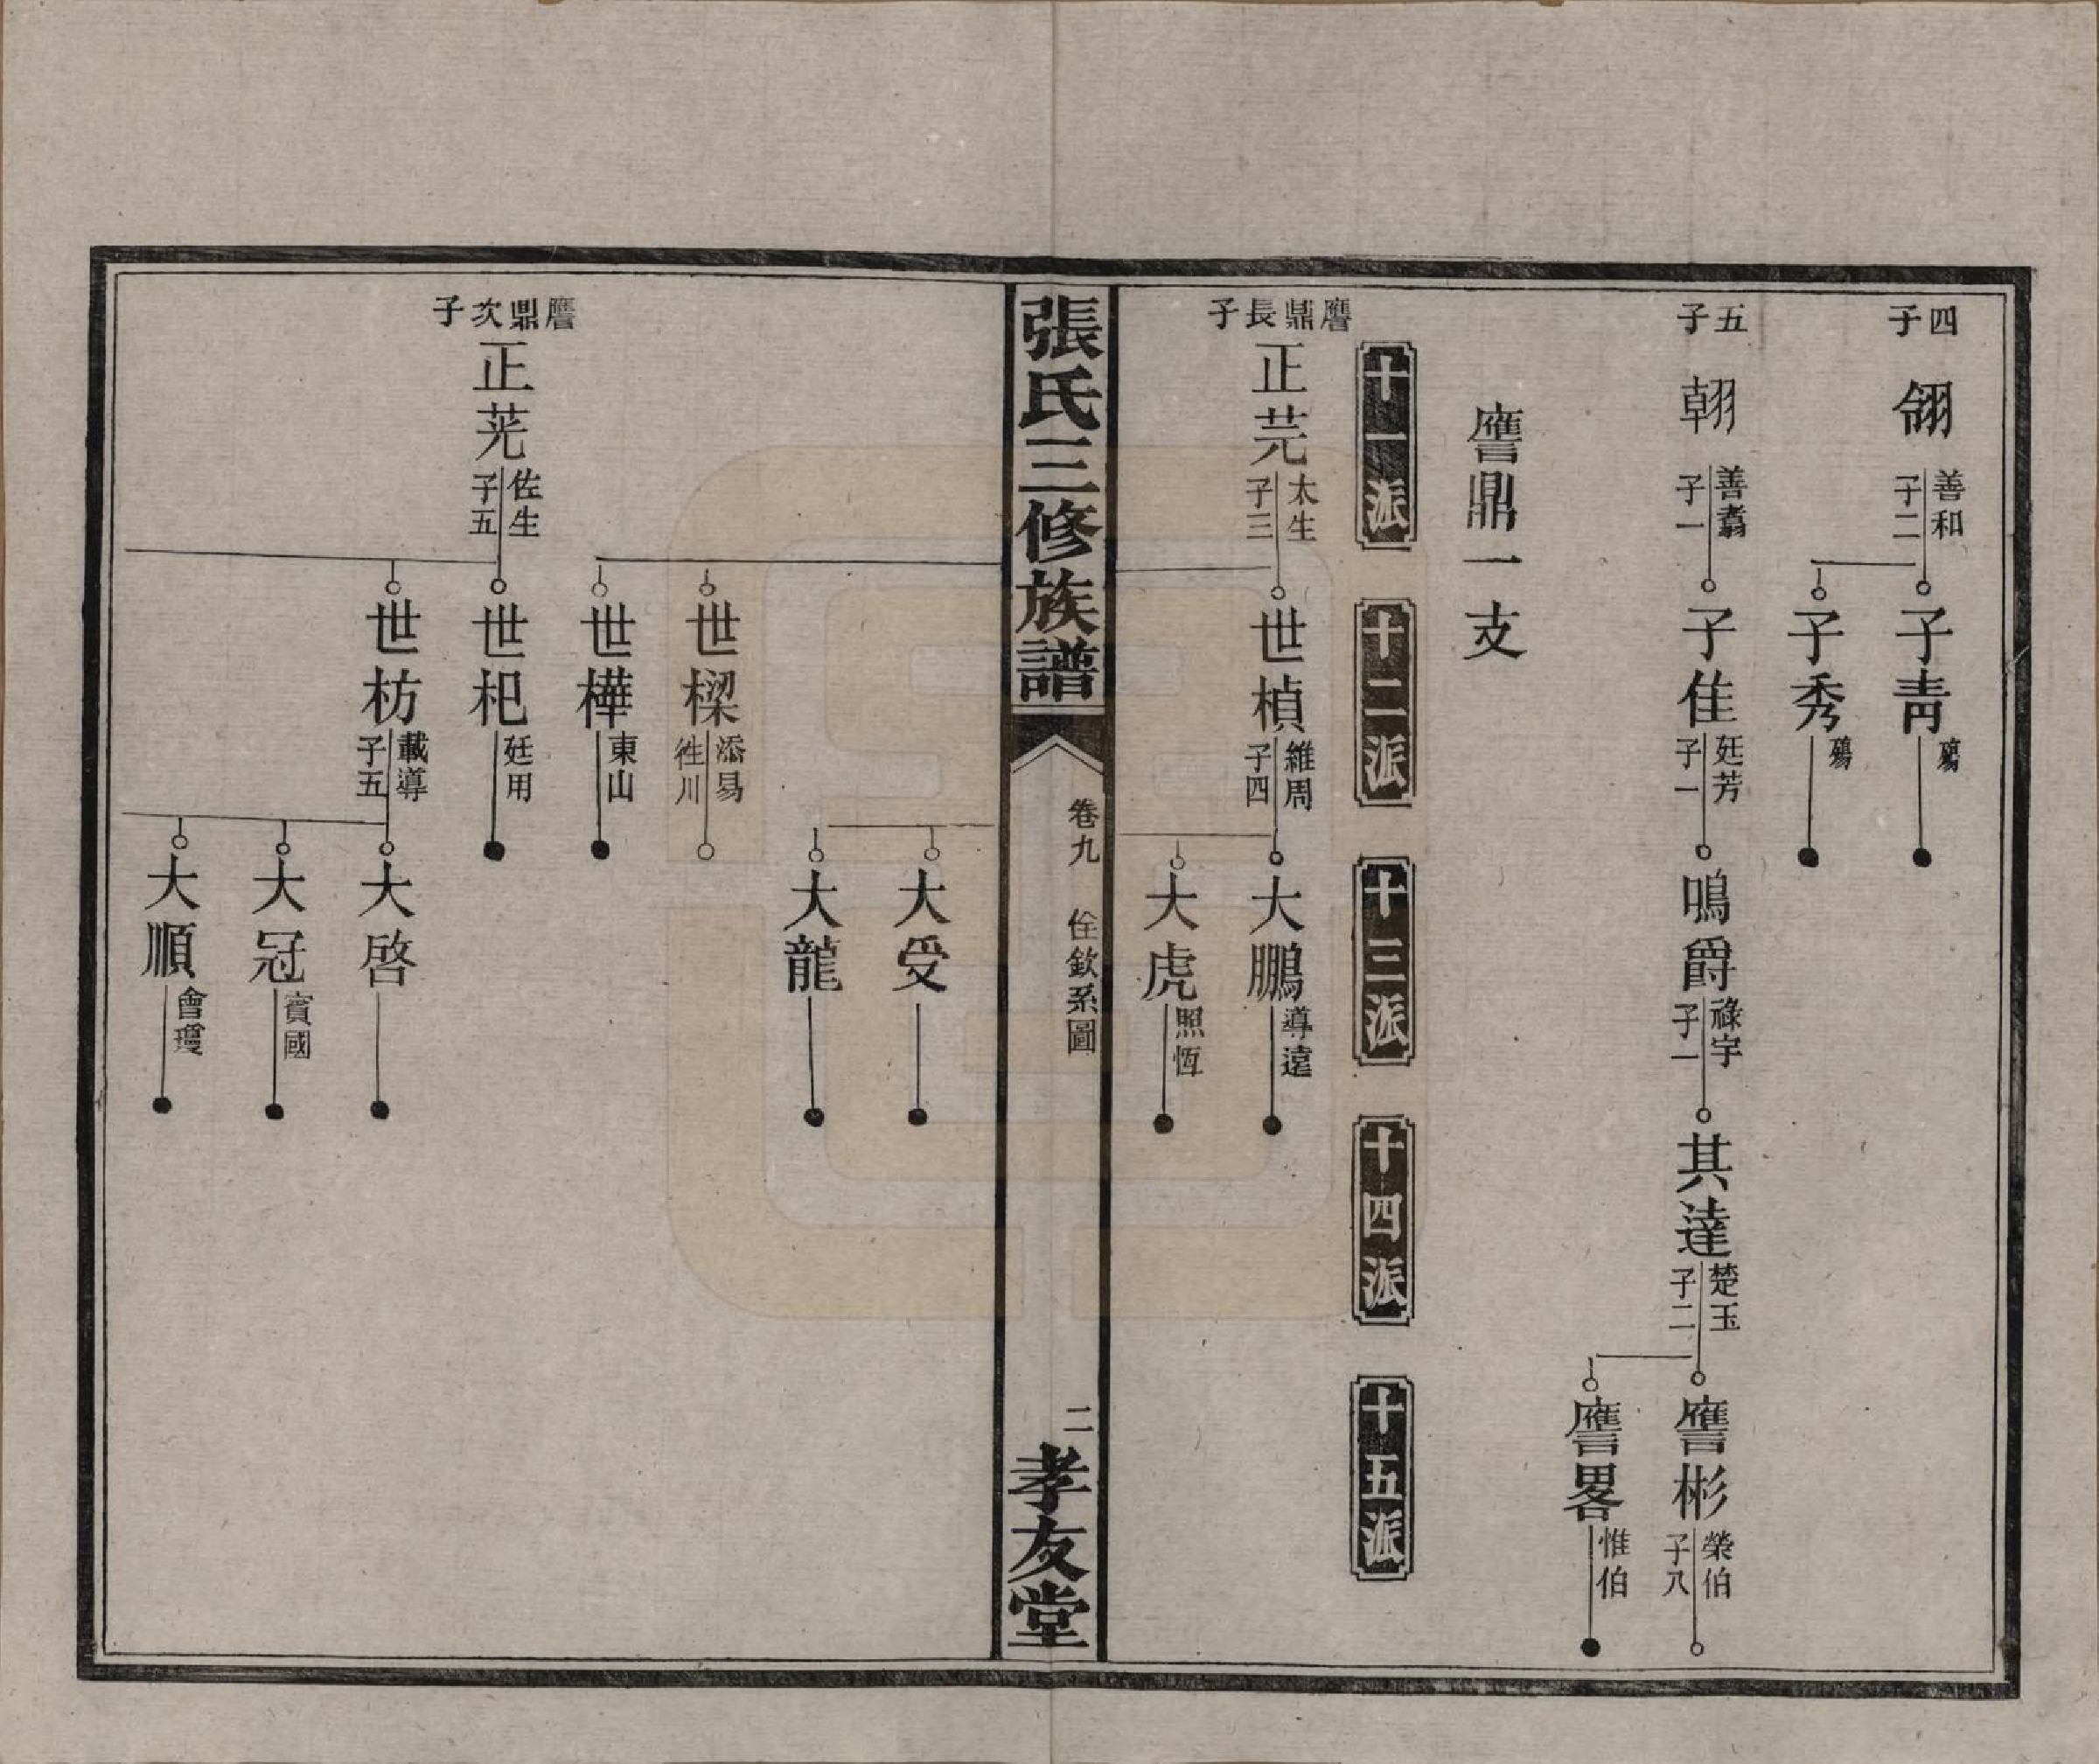 四子
翎
善和
子二
子青
殤
子秀
殤
五子
翱
善翥
子一
子佳
廷芳
子一
鳴爵
祿宇
子一
其達
楚玉
子二
譍彬
榮伯
子八
譍畧
惟伯
譍鼎一支
十一派
十二派
十三派
十四派
十五派
譍鼎長子
正芫
太生
子三
世楨
維周
子四
大鵬
導遠
大虎
照恆
張氏三修族譜
卷九
佺欽系圖
二
孝友堂
大受
大龍
世樑
添易
徃川
世樺
東山
譍鼎次子
正茪
佐生
子五
世杷
廷用
世枋
載導
子五
大啓
大冠
賓國
大順
會瓊